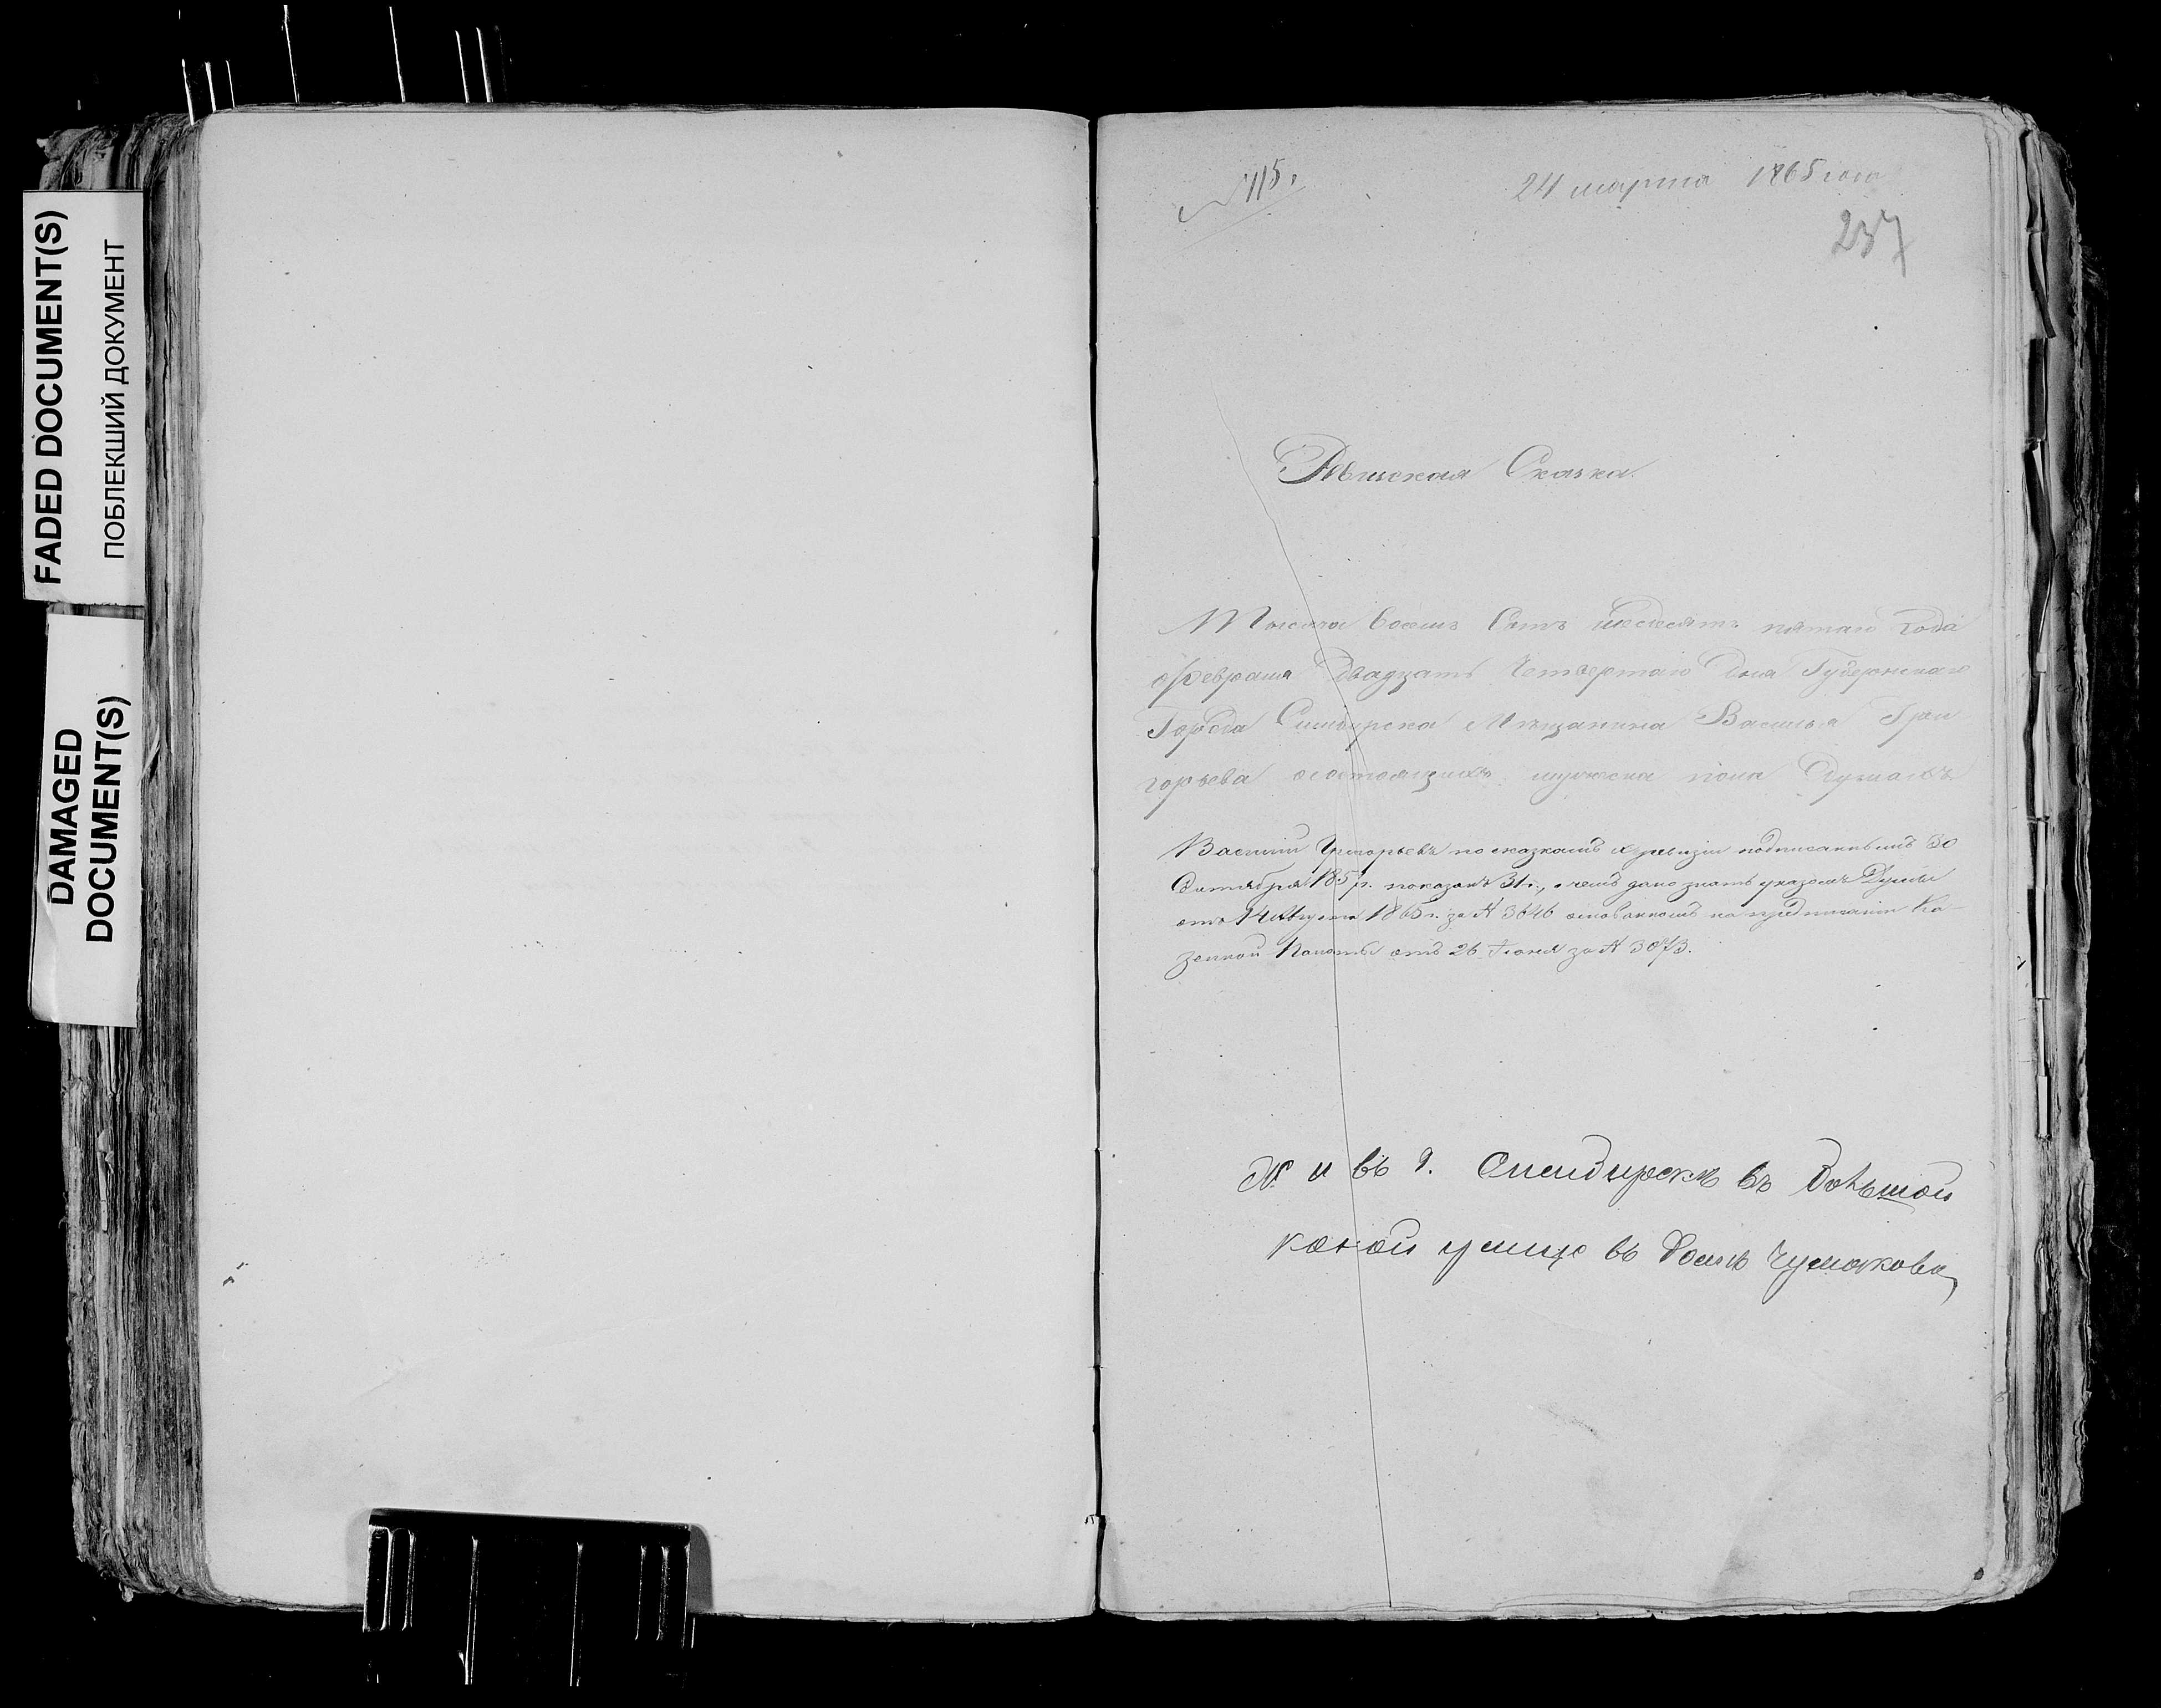 FADED DOCUMENT(S)
ПОБЛЕКШИЙ ДОКУМЕНТ
DAMAGED
DOCUMENT(S)
№ 115.
24 марта 1865 года
237
Ревиская Сказка.
Тысяча восемь Сотъ шесдесятъ пятаго года
февраля Двадцать Четвертаго Дня Губернскаго
Города Симбирска Мѣщанина Василья Гри
горьева о состоящихъ мужска пола Душахъ
Василий Григорьевъ по сказкамъ X ревизіи подписаннымъ 30
Октября 1857 г. показанъ 31 г., о чемъ дано знать указомъ Думы
отъ 14 Августа 1865 г. за № 3646 основанномъ на предписаніи Ка-
зенной Палаты отъ 26 Іюня за № 3073.
въ г. Симбирскѣ въ Большой
улице въ домѣ Чумакова